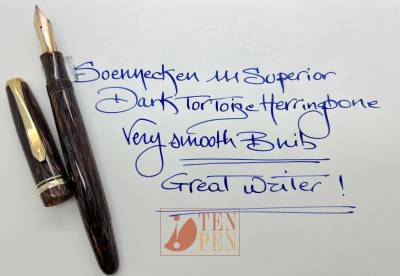 Soennecken 111 Superior
Dark Tortoise Herringbone
Very smooth B nib
Great writer !
TEN
PEN